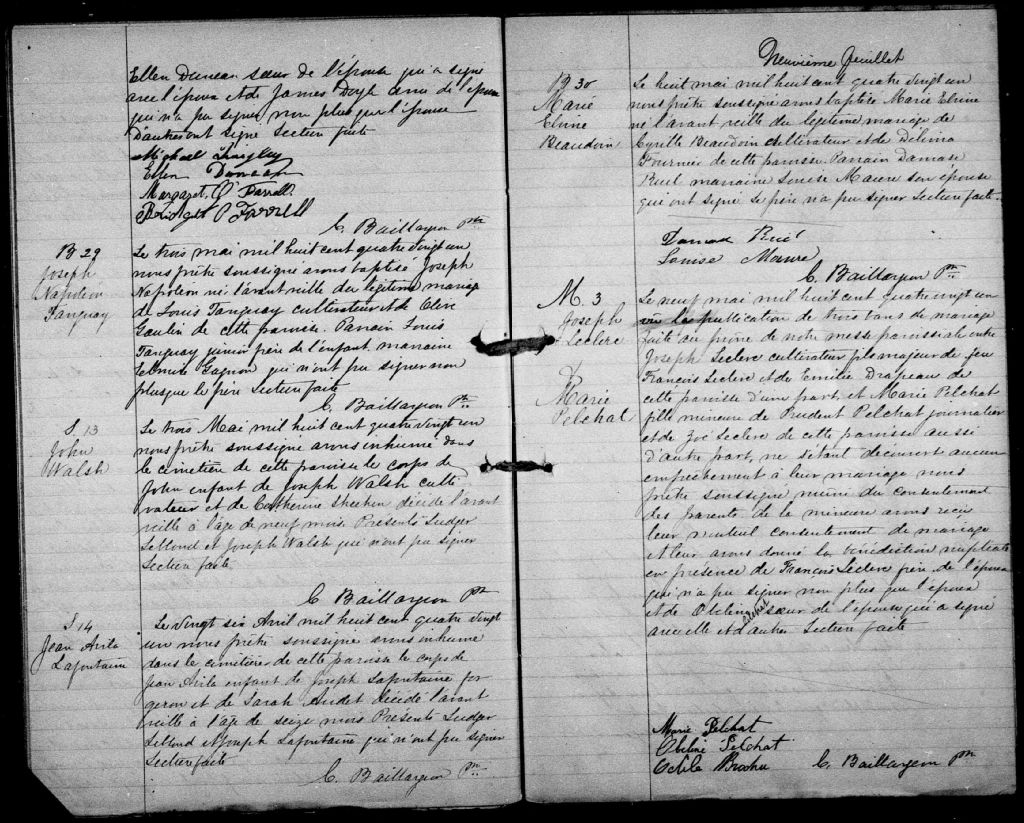 Ellen Duncan sœur de l'épouse qui a signé
avec l'époux et de James Doyle ami de l'époux
qui n'a pu signer non plus que l'épouse
D'autres ont signé Lecture faite
Michael
Ellen Duncan
Margaret O'Farrell
Bridget O'Farrell
C. Baillargeon Ptre
B 29
Joseph
Napoléon
Tanguay
Le trois mai mil huit cent quatre vingt un
nous prêtre soussigné avons baptisé Joseph
Napoléon né l'avant veille du légitime mariage
de Louis Tanguay cultivateur et de
Goulin de cette paroisse. Parrain Louis
Tanguay junior frère de l'enfant marraine
Gagnon qui n'ont pu signer non
plus que le père Lecture faite
C. Baillargeon Ptre
S 13
John
Walsh
Le trois Mai mil huit cent quatre vingt un
nous prêtre soussigné avons inhumé dans
le cimetière de cette paroisse le corps de
John enfant de Joseph Walsh culti
vateur et de Catherine Sheehen décédé l'avant
veille à l'âge de neuf mois Présents Ludger
Leblond et Joseph Walsh qui n'ont pu signer
Lecture faite
C. Baillargeon Ptre
S 14
Jean Avila
Lafontaine
Le vingt six Avril mil huit cent quatre vingt
un nous prêtre soussigné avons inhumé
dans le cimetière de cette paroisse le corps de
Jean Avila enfant de Joseph Lafontaine for
geron et de Sarah Audet décédé l'avant
veille à l'âge de seize mois Présents Ludger
Leblond et Joseph Lafontaine qui n'ont pu signer
Lecture faite
C. Baillargeon Ptre
Neuvième feuillet
B 30
Marie
Elvine
Beaudoin
Le huit mai mil huit cent quatre vingt un
nous prêtre soussigné avons baptisé Marie Elvine
né l'avant veille du légitime mariage de
Cyrille Beaudoin cultivateur et de Délima
Fournier de cette paroisse Parrain Damase
Ruel marraine Louise Maure son épouse
qui ont signé Le père n'a pu signer Lecture faite.
Damase Ruel
Louise Maure
C. Baillargeon Ptre
M. 3
Joseph
Leclerc
&
Marie
Pelchat
Le neuf mai mil huit cent quatre vingt un
vu la publication de trois bans de mariage
faite au prône de notre messe paroissiale entre
Joseph Leclerc cultivateur fils majeur de feu
François Leclerc et de Emilie Drapeau de
cette paroisse d'une part, et Marie Pelchat
fille mineure de Prudent Pelchat journalier
et de Zoé Leclerc de cette paroisse aussi
d'autre part, ne s'étant découvert aucun
empêchement à leur mariage nous
prêtre soussigné muni du consentement
des parents de la mineure avons reçu
leur mutuel consentement de mariage
et leur avons donné la bénédiction nuptiale
en présence de François Leclerc frère de l'époux
qui n'a pu signer non plus que l'époux
et de Obeline Pelchat sœur de l'épouse qui a signé
avec elle et d'autres Lecture faite
Marie Pelchat
Obeline Pelchat
Octile Brochu
C. Baillargeon Ptre